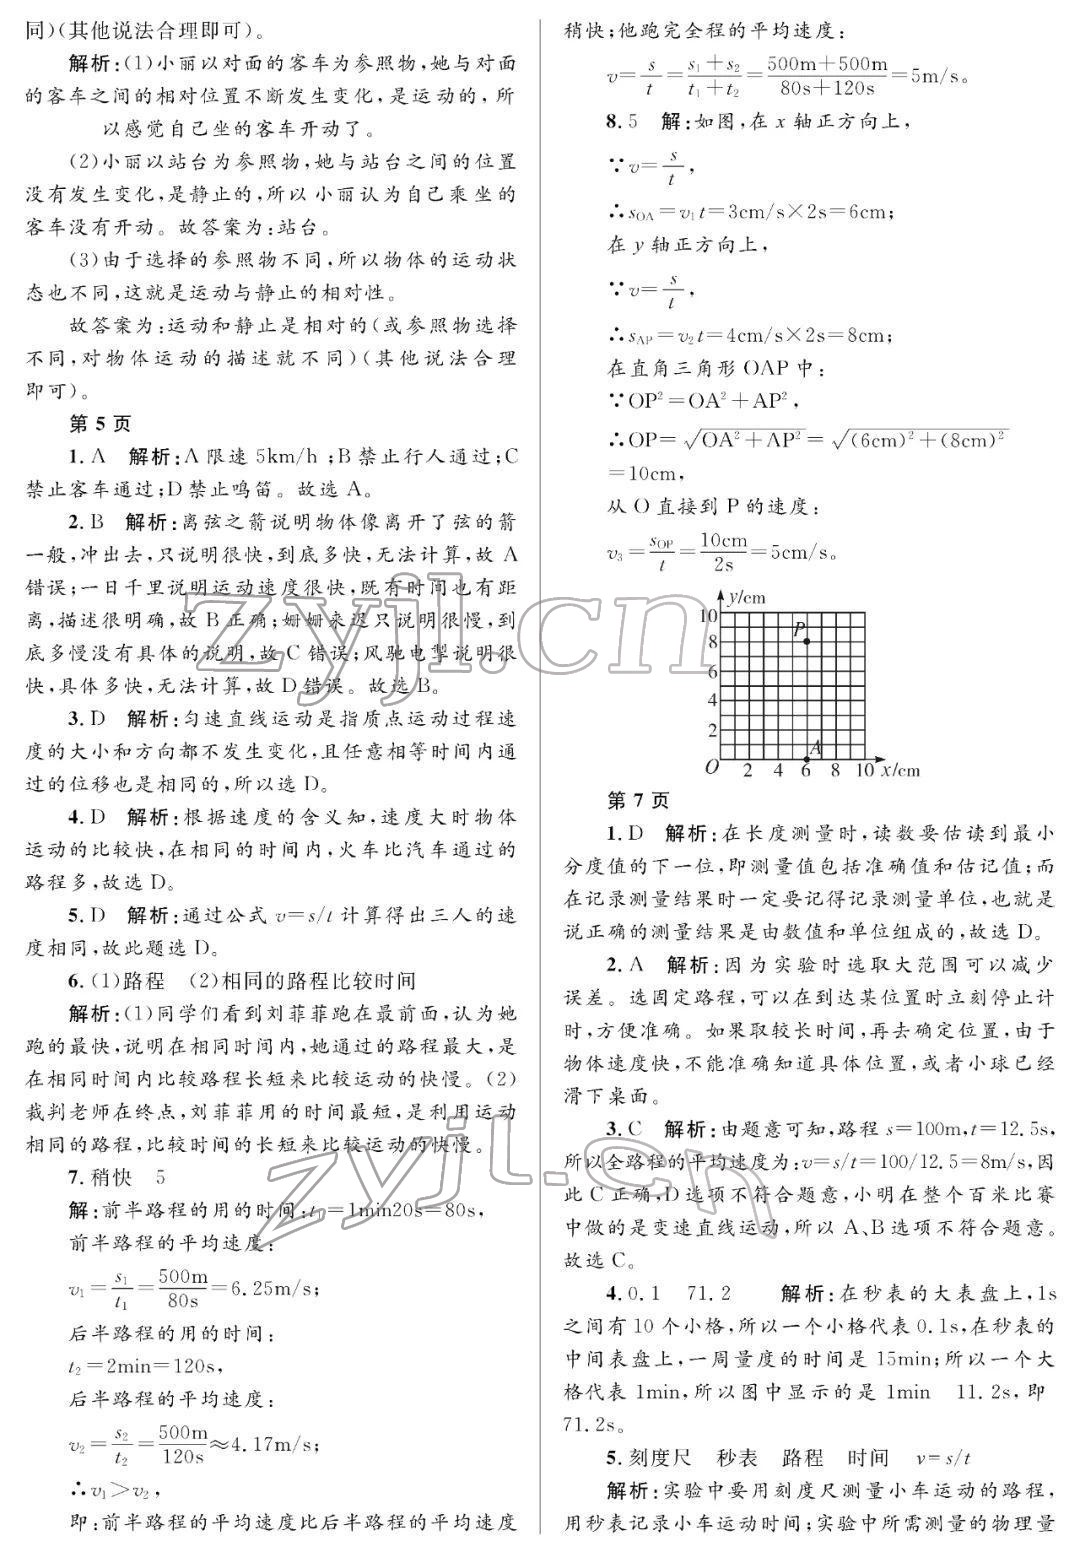 同)(其他说法合理即可)。
解析:(1)小丽以对面的客车为参照物,她与对面
的客车之间的相对位置不断发生变化,是运动的,所
以感觉自己坐的客车开动了。
(2)小丽以站台为参照物,她与站台之间的位置
没有发生变化,是静止的,所以小丽认为自己乘坐的
客车没有开动。故答案为:站台。
(3)由于选择的参照物不同,所以物体的运动状
态也不同,这就是运动与静止的相对性。
故答案为:运动和静止是相对的(或参照物选择
不同,对物体运动的描述就不同)(其他说法合理
即可)。
第5页
1. A 解析:A限速5km/h;B禁止行人通过;C
禁止客车通过;D禁止鸣笛。故选A。
2. B 解析:离弦之箭说明物体像离开了弦的箭
一般,冲出去,只说明很快,到底多快,无法计算,故A
错误;一日千里说明运动速度很快,既有时间也有距
离,描述很明确,故B正确;姗姗来迟只说明很慢,到
底多慢没有具体的说明,故C错误;风驰电掣说明很
快,具体多快,无法计算,故D错误。故选B。
3. D 解析:匀速直线运动是指质点运动过程速
度的大小和方向都不发生变化,且任意相等时间内通
过的位移也是相同的,所以选D。
4. D 解析:根据速度的含义知,速度大时物体
运动的比较快,在相同的时间内,火车比汽车通过的
路程多,故选D。
5. D 解析:通过公式v=s/t计算得出三人的速
度相同,故此题选D。
6. (1)路程 (2)相同的路程比较时间
解析:(1)同学们看到刘菲菲跑在最前面,认为她
跑的最快,说明在相同时间内,她通过的路程最大,是
在相同时间内比较路程长短来比较运动的快慢。(2)
裁判老师在终点,刘菲菲用的时间最短,是利用运动
相同的路程,比较时间的长短来比较运动的快慢。
7. 稍快 5
解:前半路程的用的时间:t₁=1min20s=80s,
前半路程的平均速度:
v₁=s₁/t₁=500m/80s=6.25m/s;
后半路程的用的时间:
t₂=2min=120s,
后半路程的平均速度:
v₂=s₂/t₂=500m/120s≈4.17m/s;
∴v₁>v₂,
即:前半路程的平均速度比后半路程的平均速度
稍快;他跑完全程的平均速度:
v=s/t=(s₁+s₂)/(t₁+t₂)=(500m+500m)/(80s+120s)=5m/s。
8. 5 解:如图,在x轴正方向上,
∵v=s/t,
∴s_OA=v₁t=3cm/s×2s=6cm;
在y轴正方向上,
∵v=s/t,
∴s_AP=v₂t=4cm/s×2s=8cm;
在直角三角形OAP中:
∵OP²=OA²+AP²,
∴OP=√(OA²+AP²)=√((6cm)²+(8cm)²)
=10cm,
从O直接到P的速度:
v₃=s_OP/t=10cm/2s=5cm/s。
y/cm
10
8
6
4
2
P
A
O 2 4 6 8 10 x/cm
第7页
1. D 解析:在长度测量时,读数要估读到最小
分度值的下一位,即测量值包括准确值和估记值;而
在记录测量结果时一定要记得记录测量单位,也就是
说正确的测量结果是由数值和单位组成的,故选D。
2. A 解析:因为实验时选取大范围可以减少
误差。选固定路程,可以在到达某位置时立刻停止计
时,方便准确。如果取较长时间,再去确定位置,由于
物体速度快,不能准确知道具体位置,或者小球已经
滑下桌面。
3. C 解析:由题意可知,路程s=100m,t=12.5s,
所以全路程的平均速度为:v=s/t=100/12.5=8m/s,因
此C正确,D选项不符合题意,小明在整个百米比赛
中做的是变速直线运动,所以A、B选项不符合题意。
故选C。
4. 0.1 71.2 解析:在秒表的大表盘上,1s
之间有10个小格,所以一个小格代表0.1s,在秒表的
中间表盘上,一周量度的时间是15min;所以一个大
格代表1min,所以图中显示的是1min 11.2s,即
71.2s。
5. 刻度尺 秒表 路程 时间 v=s/t
解析:实验中要用刻度尺测量小车运动的路程,
用秒表记录小车运动时间;实验中所需测量的物理量
zyjl.cn
zyjl.cn